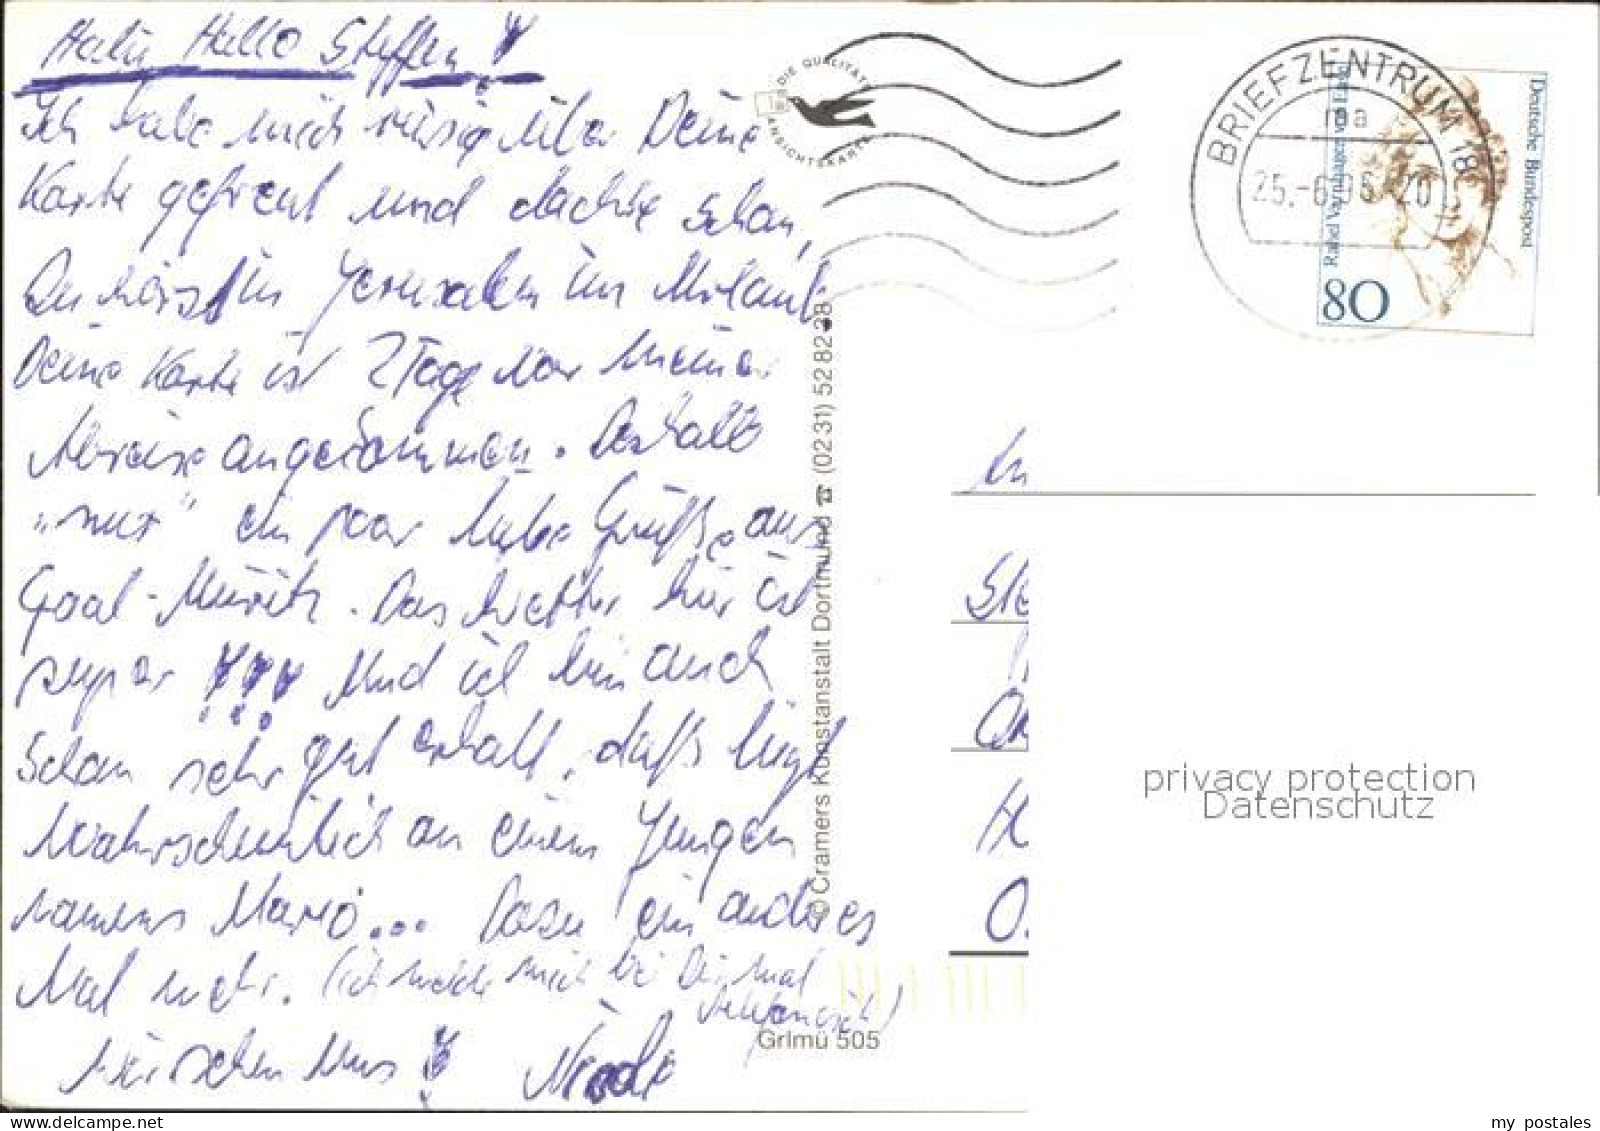 Hallo Steffen!
Ich habe mich riesig über Deine
Karte gefreut und dachte schon,
Du wärst in Jerusalem im Urlaub.
Deine Karte ist 2 Tage vor meiner
Abreise angekommen. Deshalb
"nur" ein paar liebe Grüße aus
Graal-Müritz. Das Wetter hier ist
super !!! Und ich bin auch
schon sehr gut erholt, daß liegt
wahrscheinlich an einem Jungen
namens Mario... Dazu ein anderes
Mal mehr. (ich melde mich bei Dir mal
telefonisch)
Küßchen Nicole
DIE QUALITÄTS
ANSICHTSKARTE
© Cramers Kunstanstalt Dortmund ☎ (0231) 528238
Grlmü 505
BRIEFZENTRUM 18
25.-6.96-20
Deutsche Bundespost
Rahel Varnhagen von Ense
80
An
Ste
privacy protection
Datenschutz
my postales